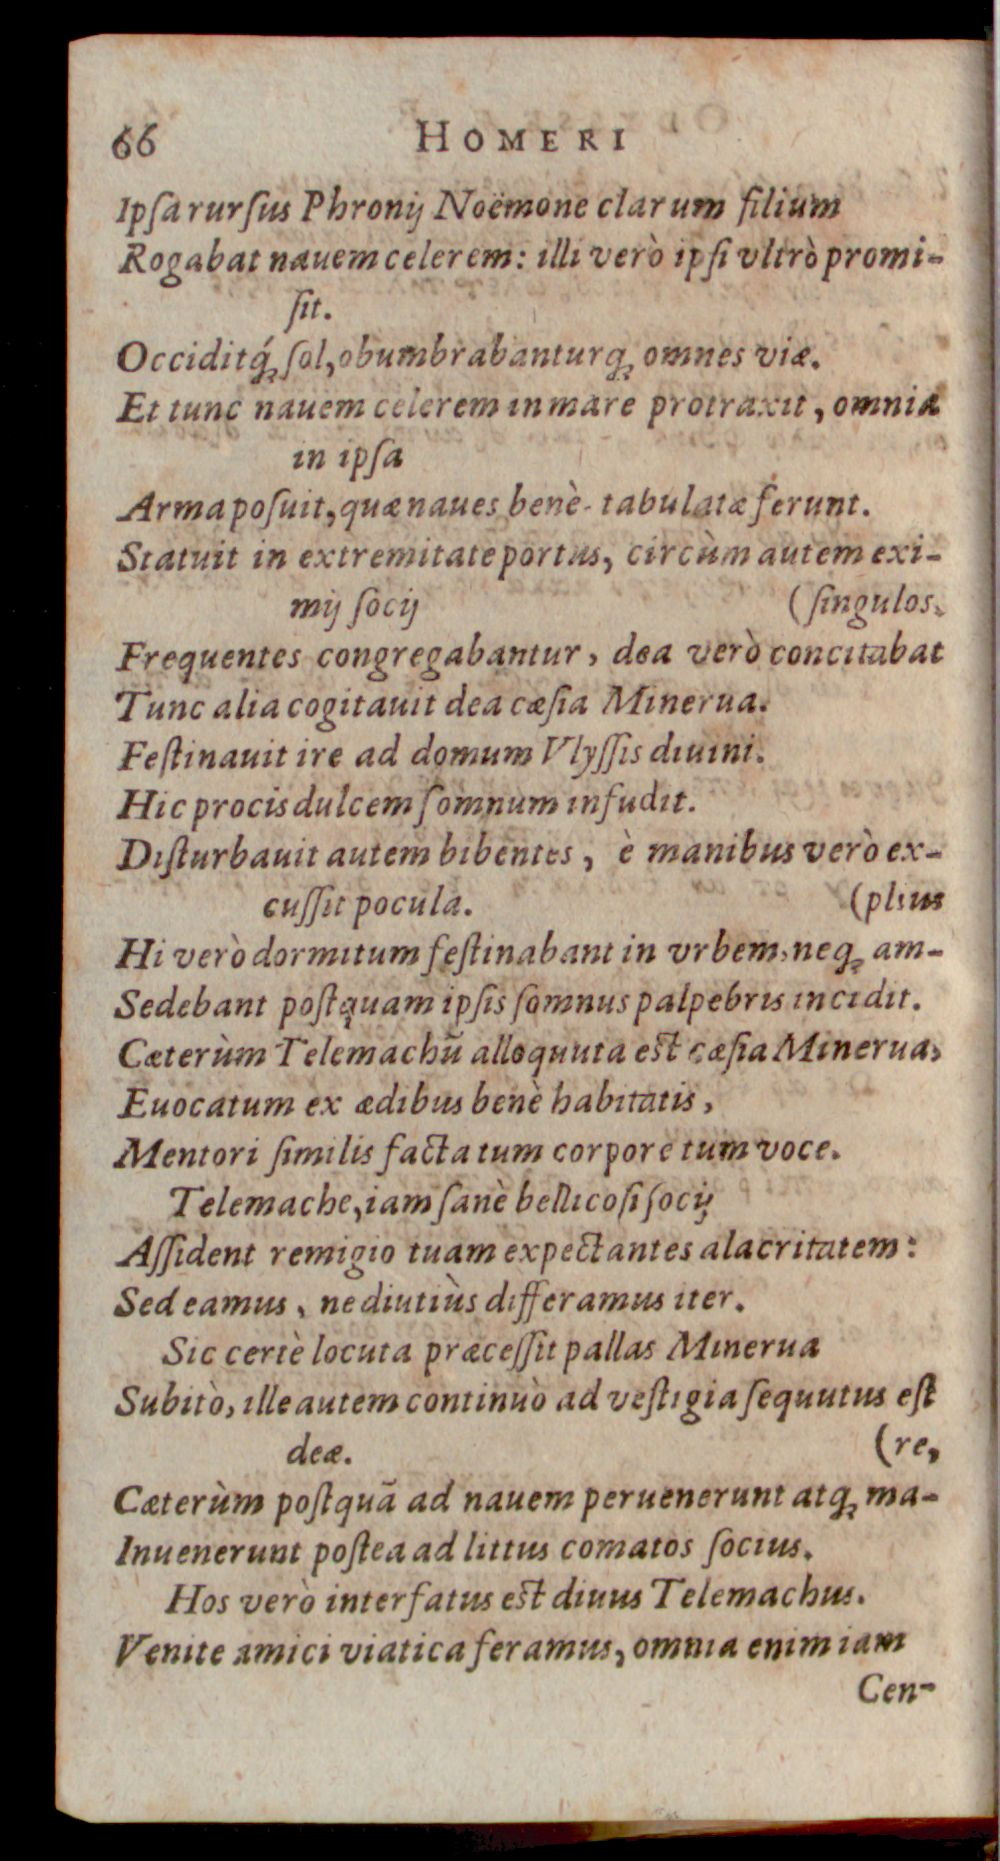 66 HOMERI
Ipſa rurſus Phronij Noëmone clarum filium
Rogabat nauem celerem: illi verò ipſi vltrò promi-
ſit.
Occiditq́; ſol, obumbrabanturq; omnes viæ.
Et tunc nauem celerem in mare protraxit, omnia
in ipſa
Arma poſuit, quæ naues benè tabulatæ ferunt.
Statuit in extremitate portus, circùm autem exi-
mij ſocij (ſingulos.
Frequentes congregabantur, dea verò concitabat
Tunc alia cogitauit dea cæſia Minerua.
Feſtinauit ire ad domum Vlyſſis diuini.
Hic procis dulcem ſomnum infudit.
Diſturbauit autem bibentes, è manibus verò ex-
cuſſit pocula. (plius
Hi verò dormitum feſtinabant in vrbem, neq; am-
Sedebant poſtquam ipſis ſomnus palpebris incidit.
Cæterùm Telemachũ alloquuta eſt cæſia Minerua,
Euocatum ex ædibus benè habitatis,
Mentori ſimilis facta tum corpore tum voce.
Telemache, iam ſanè bellicoſi ſocij
Aſſident remigio tuam expectantes alacritatem:
Sed eamus, ne diutiùs differamus iter.
Sic certè locuta præceſſit pallas Minerua
Subitò, ille autem continuò ad veſtigia ſequutus eſt
deæ. (re,
Cæterùm poſtquã ad nauem peruenerunt atq; ma-
Inuenerunt poſtea ad littus comatos ſocius.
Hos verò interfatus eſt diuus Telemachus.
Venite amici viatica feramus, omnia enim iam
Cen-